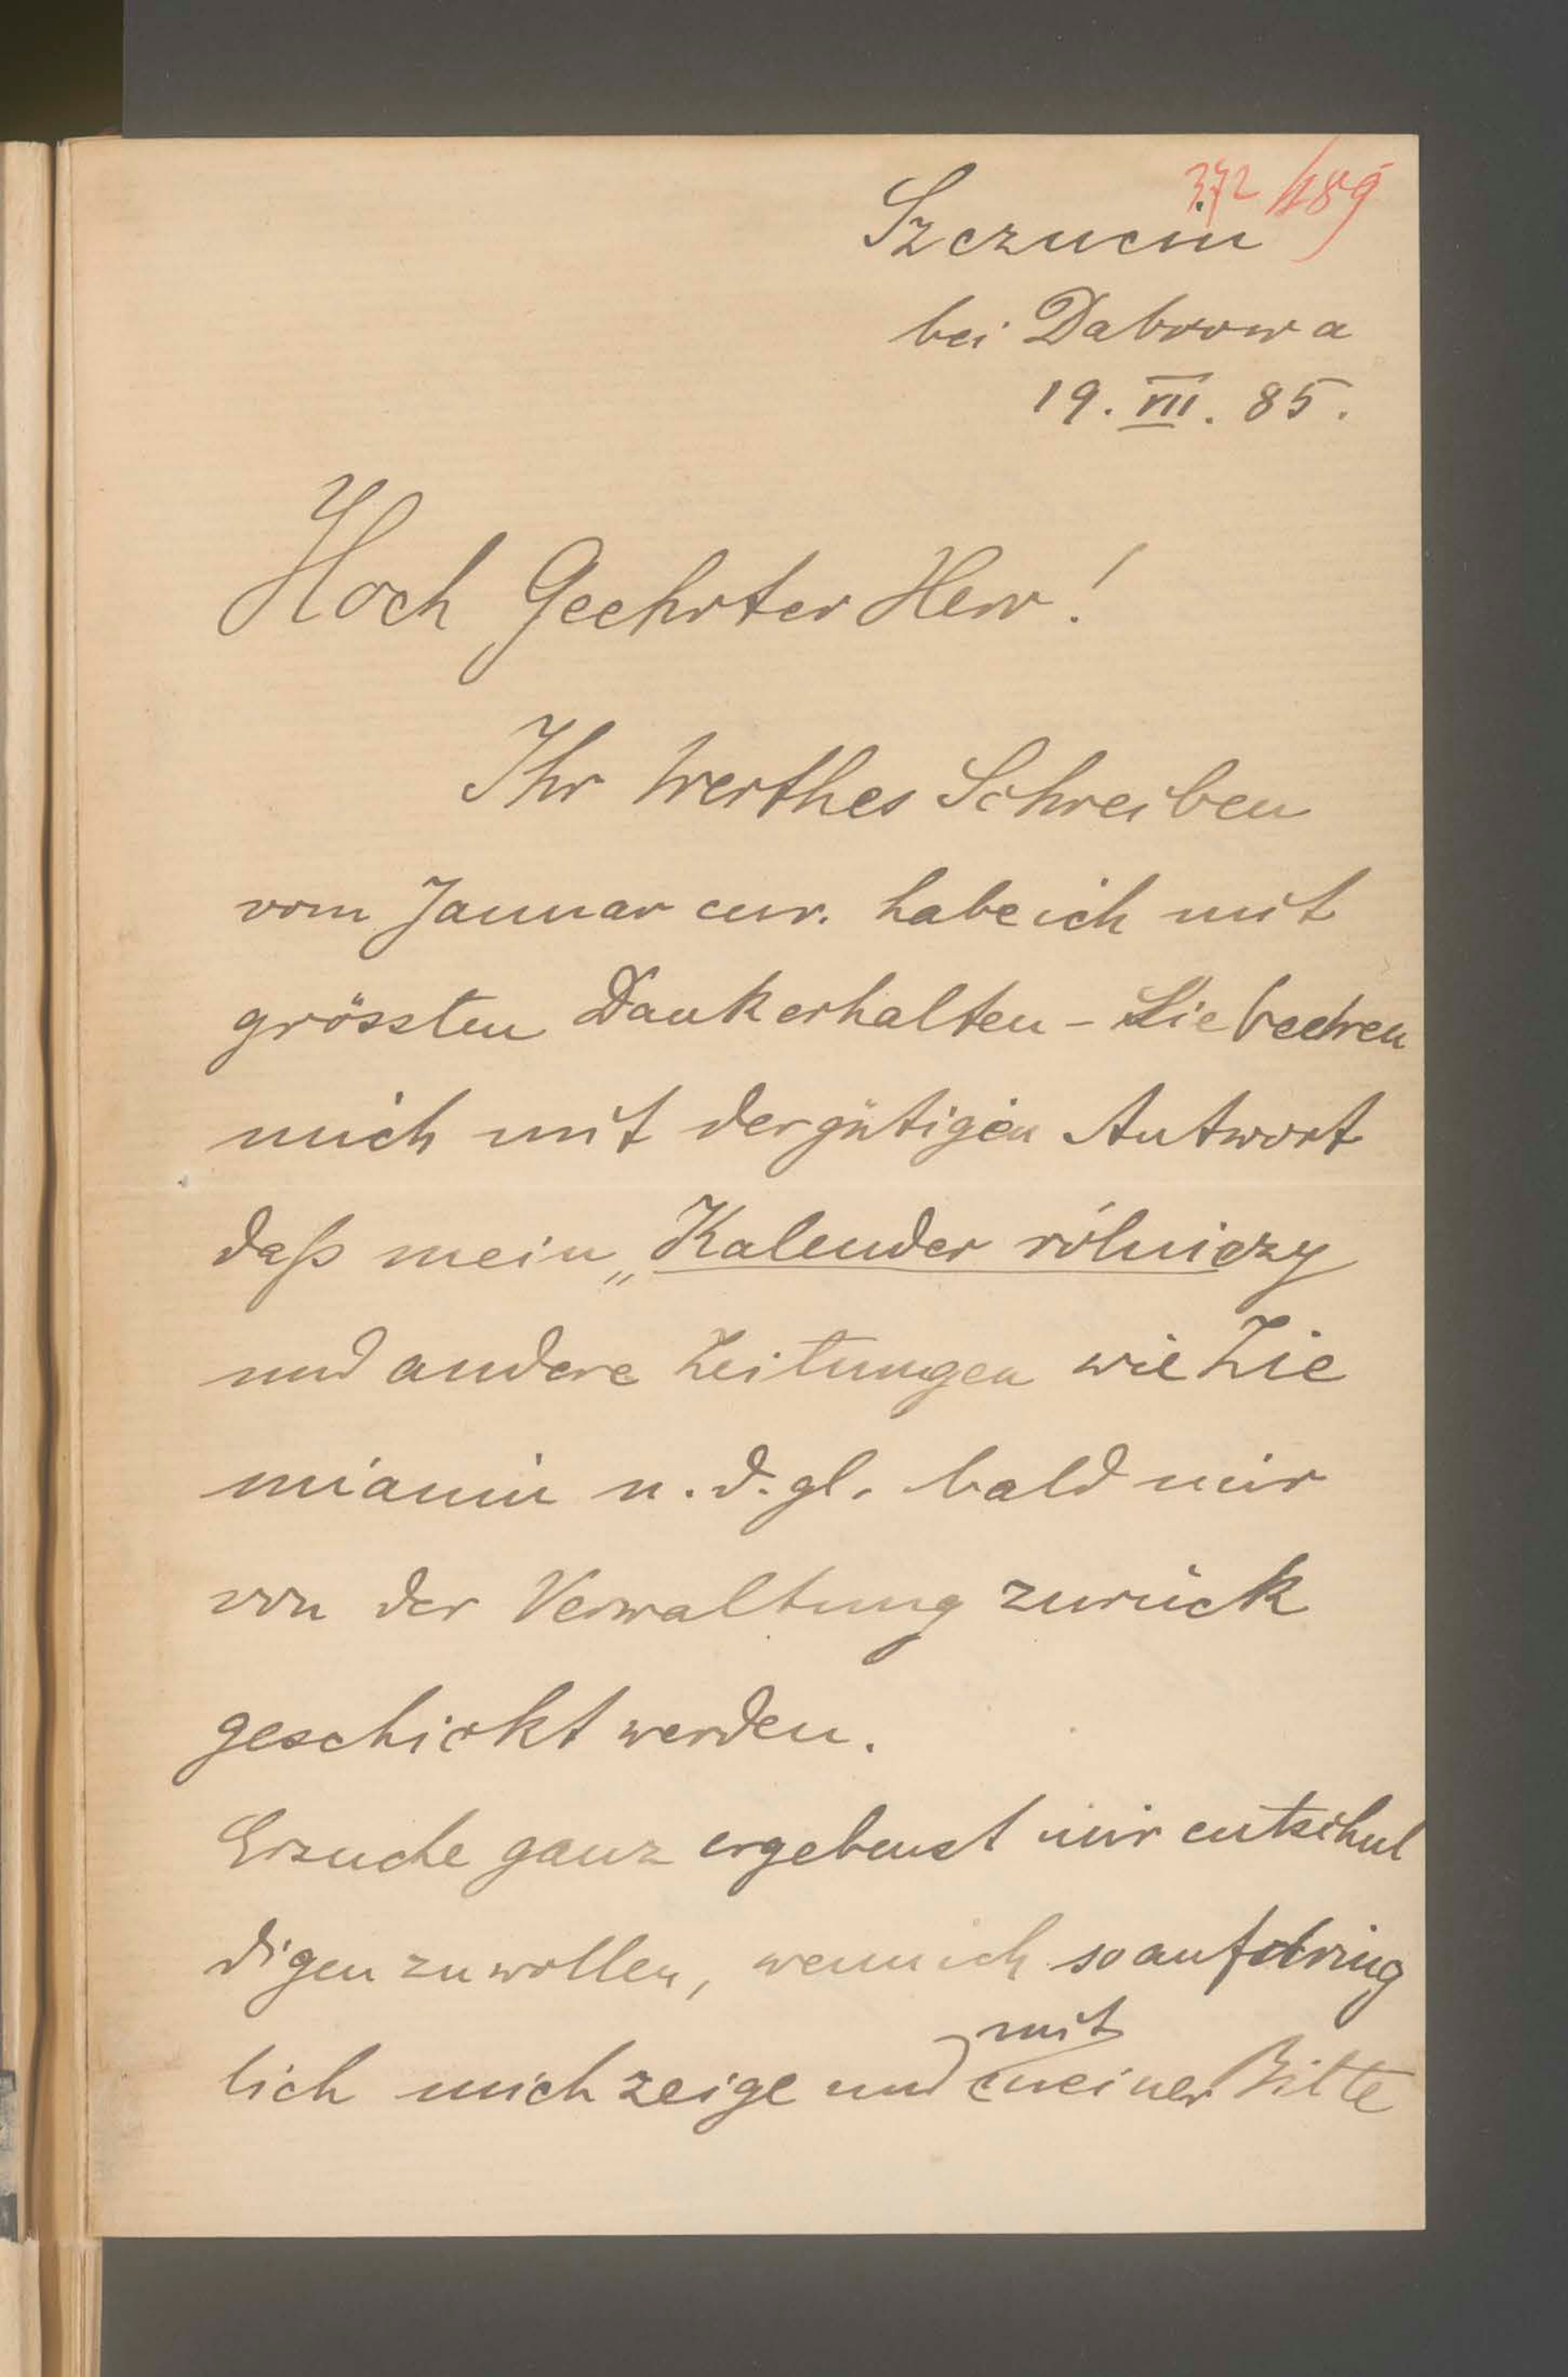 372 189
Szczucin
bei Dabrowa
19. VII. 85.
Hoch Geehrter Herr!
Ihr Werthes Schreiben
vom Januar cur. habe ich mit
grössten Dank erhalten - Sie beehren
mich mit der gütigen Antwort
daß mein „Kalender rólniczy
und andere Zeitungen wie Zie
mianin u. d. gl. bald mir
von der Verwaltung zurück
geschickt werden.
Ersuche ganz ergebenst mir entschul
digen zu wollen, wenn ich so aufdring
lich mich zeige und mit meiner Bitte